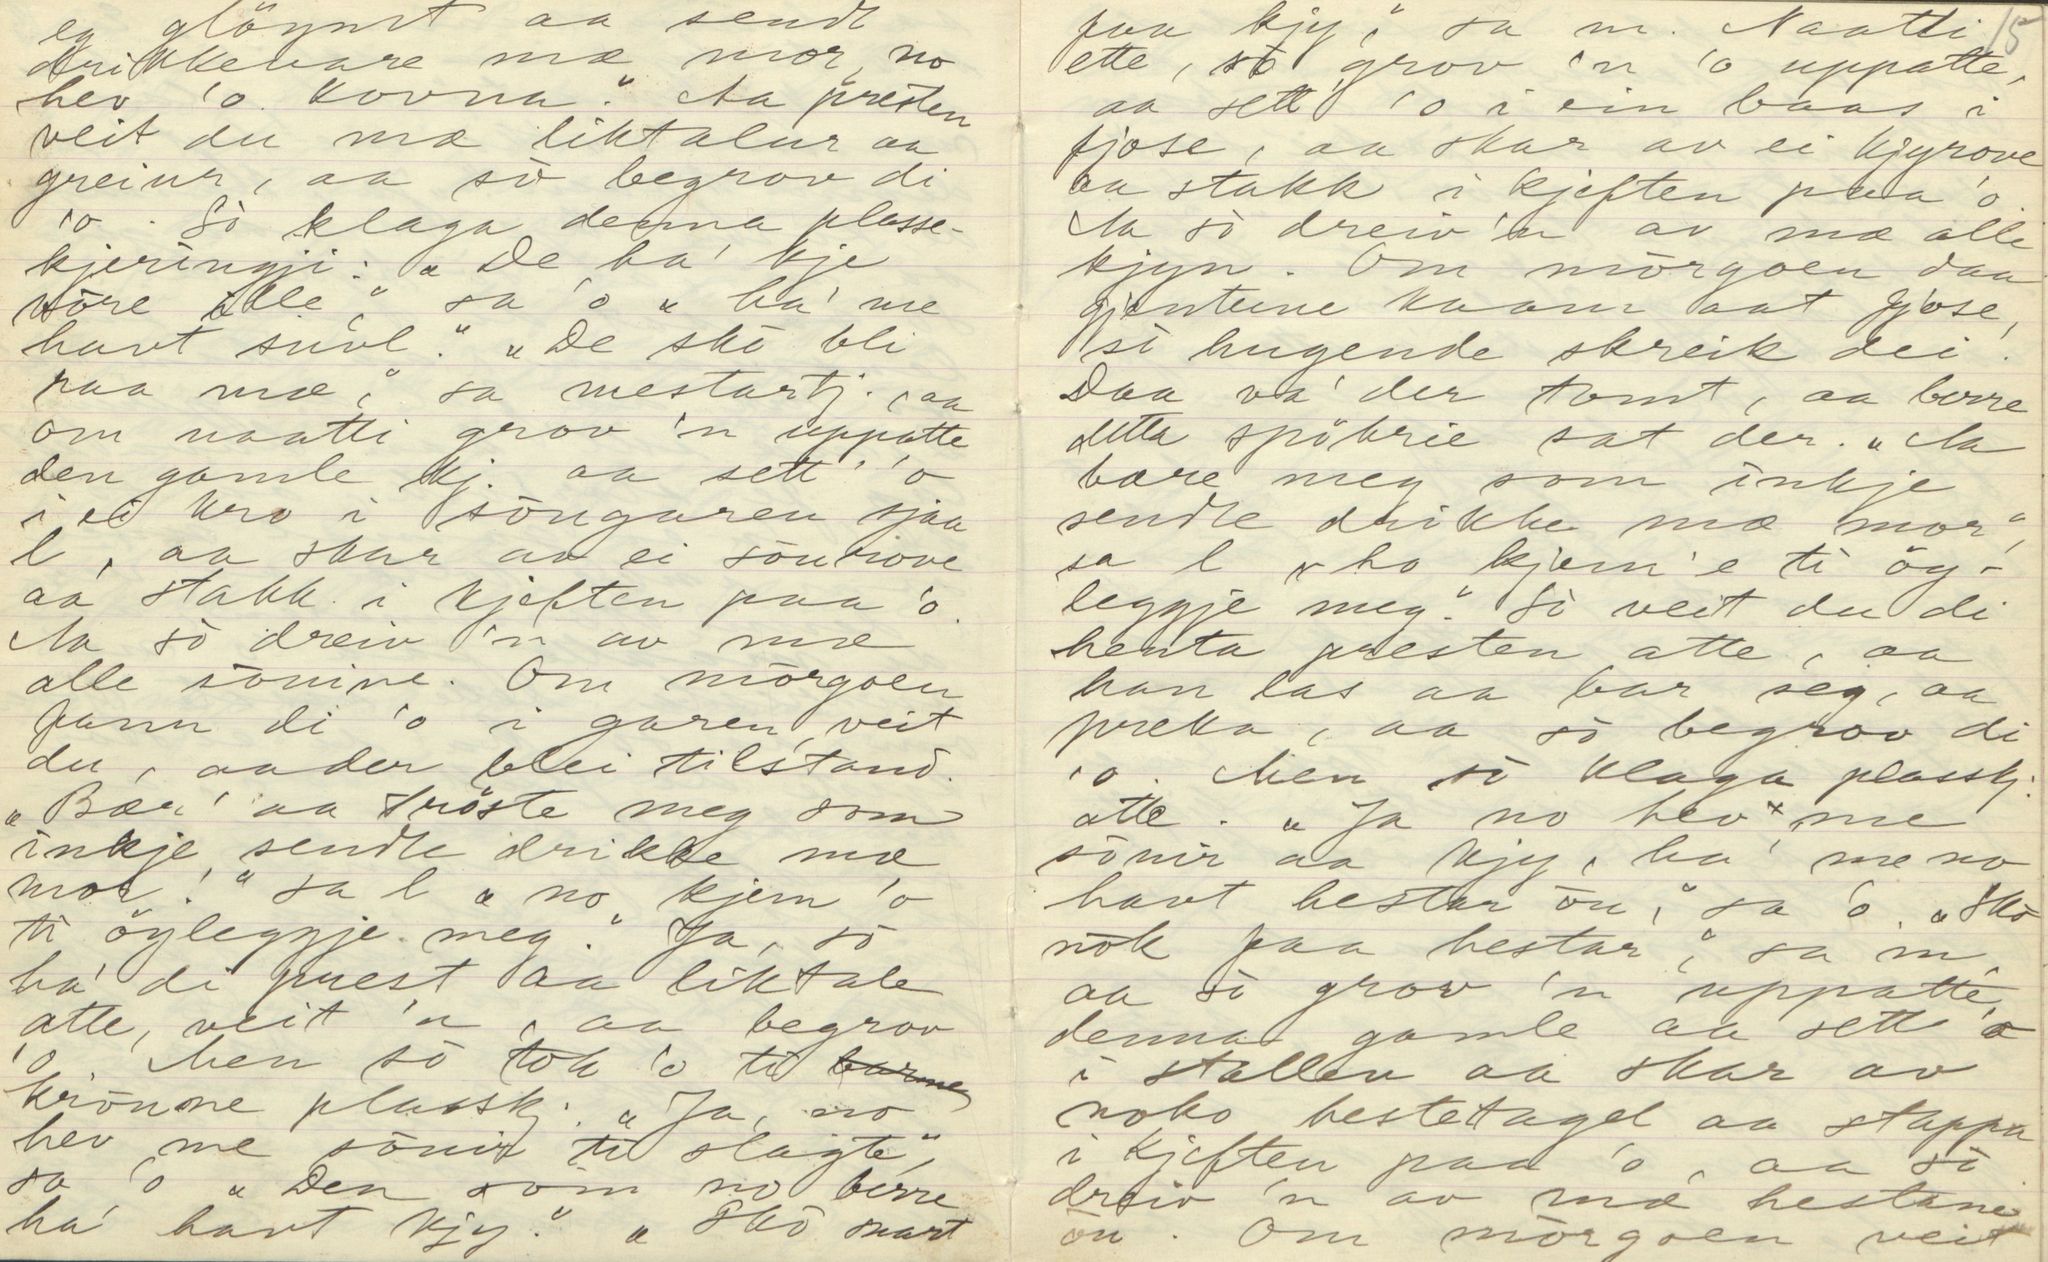 eg glöymt aa sendt
drikkevare mæ mor, no
hev 'o kovna." Aa presten
veit du mæ liktalur aa
greiur, aa sò begrov di
'o. Sò klaga denna plasse-
kjeringji: "De ha' kje
vöre ille," sa 'o "ha' me
havt suvl." "De skò bli
raa mæ," sa mestartj., aa
om naatti grov 'n uppatte
den gamle kj. aa sett' 'o
i ei kro i sòngaren sjaa
l, aa skar av ei souròve
aa stakk i kjeften paa 'o.
Aa sò dreiv 'n av mæ
alle sòuine. Om mòrgoen
fann di 'o i garen, veit
du, aa der blei tilstand.
"Bær' aa tröste meg som
inkje sendte drikke mæ
mor!" sa l "no kjem 'o
ti öyleggje meg." Ja, sò
ha' di prest aa liktale
atte, veit 'n, aa begrov
'o. Men sò tok 'o ti barme
krònne plasskj. "Ja, no
hev me sòuir ti slagte",
sa 'o "Den som no berre
ha' havt kjy." "Skò snart
15
faa kjy," sa 'n. Naatti
ette, sò grov 'n 'o uppatte,
aa sett' 'o i ein baas i
fjose, aa skar av ei kjyrove
aa stakk i kjeften paa 'o.
Aa sò dreiv 'n av mæ alle
kjyn. Om mòrgoen daa
gjentune kaam aat fjose,
sò hugende skreik dei.
Daa va' der tomt, aa berre
detta spökrie sat der. "Aa
bære meg som inkje
sendte drikke mæ mor",
sa l "ho kjem 'e ti öy-
leggje meg." Sò veit du di
henta presten atte, aa
han las aa bar seg, aa
preka, aa sò begrov di
'o. Men sò klaga plasskj.
atte. "Ja no hev x me
sòuir aa kjy, ha' me no
havt hestar òu," sa 'o. "Skò
nòk faa hestar", sa 'n
aa sò grov 'n uppatte,
denna gamle aa sett 'o
i stallen aa skar av
noko hestetagel aa stappa
i kjeften paa 'o, aa sò
dreiv 'n av mæ hestane
òu. Om mòrgoen veit